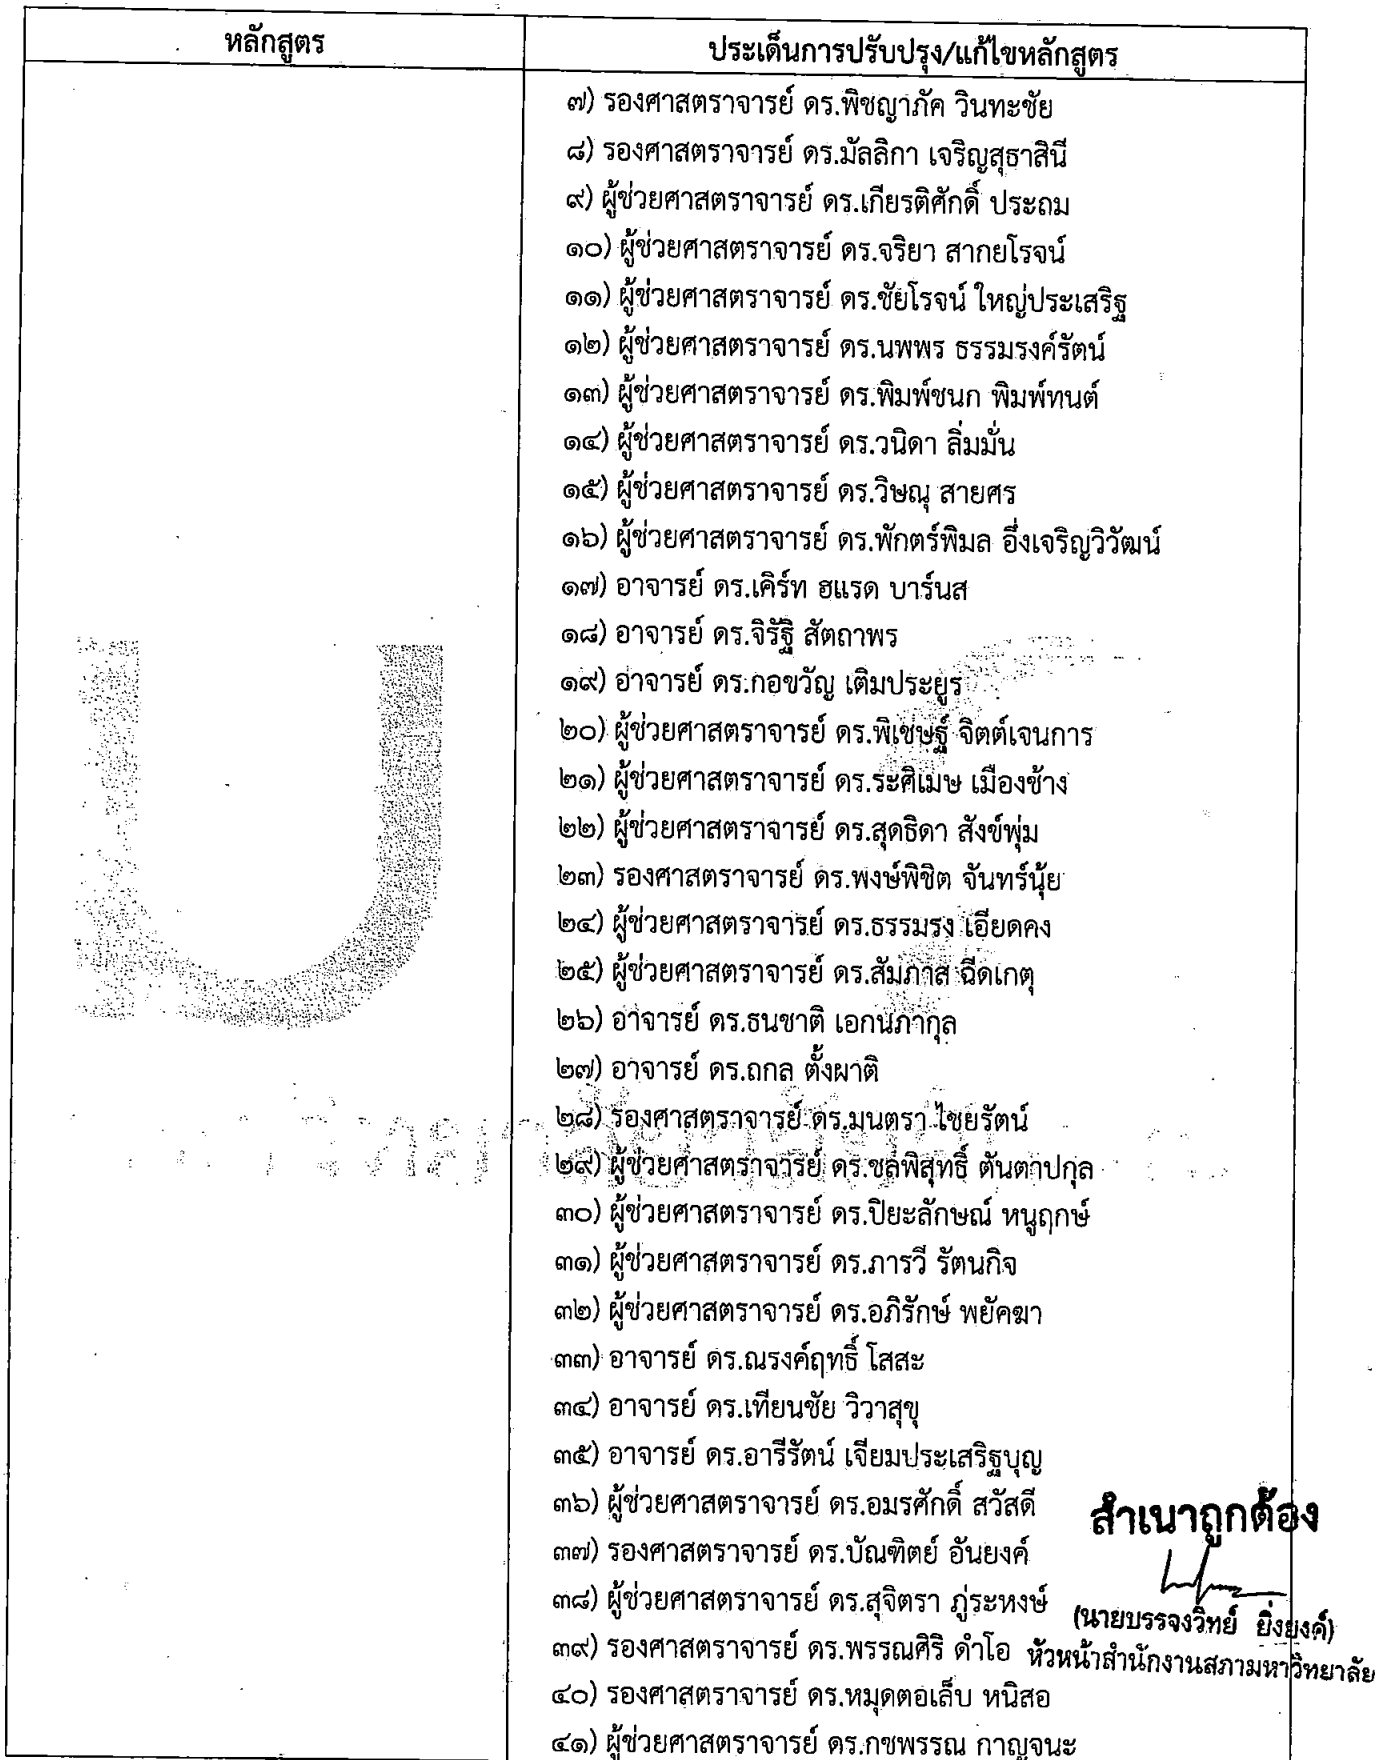 หลักสูตร
ประเด็นการปรับปรุง/แก้ไขหลักสูตร
๗) รองศาสตราจารย์ ดร.พิชญาภัค วินทะชัย
๘) รองศาสตราจารย์ ดร.มัลลิกา เจริญสุธาสินี
๙) ผู้ช่วยศาสตราจารย์ ดร.เกียรติศักดิ์ ประถม
๑๐) ผู้ช่วยศาสตราจารย์ ดร.จริยา สากยโรจน์
๑๑) ผู้ช่วยศาสตราจารย์ ดร.ชัยโรจน์ ใหญ่ประเสริฐ
๑๒) ผู้ช่วยศาสตราจารย์ ดร.นพพร ธรรมรงค์รัตน์
๑๓) ผู้ช่วยศาสตราจารย์ ดร.พิมพ์ชนก พิมพ์ทนต์
๑๔) ผู้ช่วยศาสตราจารย์ ดร.วนิดา ลิ่มมั่น
๑๕) ผู้ช่วยศาสตราจารย์ ดร.วิษณุ สายศร
๑๖) ผู้ช่วยศาสตราจารย์ ดร.พักตร์พิมล อึ่งเจริญวิวัฒน์
๑๗) อาจารย์ ดร.เคิร์ท ฮแรด บาร์นส
๑๘) อาจารย์ ดร.จิรัฐิ สัตถาพร
๑๙) อาจารย์ ดร.กอขวัญ เติมประยูร
๒๐) ผู้ช่วยศาสตราจารย์ ดร.พิเชษฐ์ จิตต์เจนการ
๒๑) ผู้ช่วยศาสตราจารย์ ดร.ระศิเมษ เมืองช้าง
๒๒) ผู้ช่วยศาสตราจารย์ ดร.สุดธิดา สังข์พุ่ม
๒๓) รองศาสตราจารย์ ดร.พงษ์พิชิต จันทร์นุ้ย
๒๔) ผู้ช่วยศาสตราจารย์ ดร.ธรรมรง เอียดคง
๒๕) ผู้ช่วยศาสตราจารย์ ดร.สัมภาส ฉีดเกตุ
๒๖) อาจารย์ ดร.ธนชาติ เอกนภากุล
๒๗) อาจารย์ ดร.ถกล ตั้งผาติ
๒๘) รองศาสตราจารย์ ดร.มนตรา ไชยรัตน์
๒๙) ผู้ช่วยศาสตราจารย์ ดร.ชลพิสุทธิ์ ตันตาปกุล
๓๐) ผู้ช่วยศาสตราจารย์ ดร.ปิยะลักษณ์ หนูฤกษ์
๓๑) ผู้ช่วยศาสตราจารย์ ดร.ภารวี รัตนกิจ
๓๒) ผู้ช่วยศาสตราจารย์ ดร.อภิรักษ์ พยัคฆา
๓๓) อาจารย์ ดร.ณรงค์ฤทธิ์ โสสะ
๓๔) อาจารย์ ดร.เทียนชัย วิวาสุขุ
๓๕) อาจารย์ ดร.อารีรัตน์ เจียมประเสริฐบุญ
๓๖) ผู้ช่วยศาสตราจารย์ ดร.อมรศักดิ์ สวัสดี
๓๗) รองศาสตราจารย์ ดร.บัณฑิตย์ อันยงค์
๓๘) ผู้ช่วยศาสตราจารย์ ดร.สุจิตรา ภู่ระหงษ์
๓๙) รองศาสตราจารย์ ดร.พรรณศิริ ดำโอ
๔๐) รองศาสตราจารย์ ดร.หมุดตอเล็บ หนิสอ
๔๑) ผู้ช่วยศาสตราจารย์ ดร.กชพรรณ กาญจนะ
สำเนาถูกต้อง
(นายบรรจงวิทย์ ยิ่งยงค์)
หัวหน้าสำนักงานสภามหาวิทยาลัย